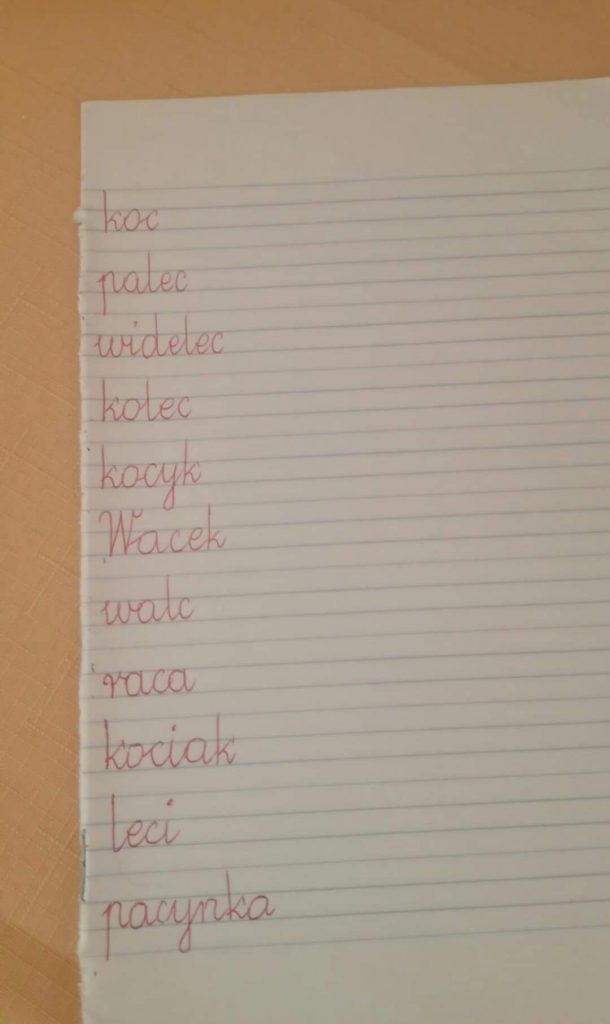 koc
palec
widelec
kolec
kocyk
Wacek
walc
raca
kociak
leci
pacynka